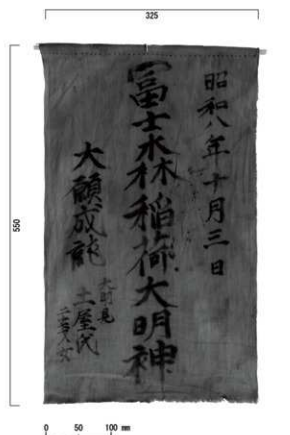 325
550
昭和八年十月三日
冨士森稲荷大明神
大願成就
大明見
土屋氏
二十二才女
0 50 100 mm